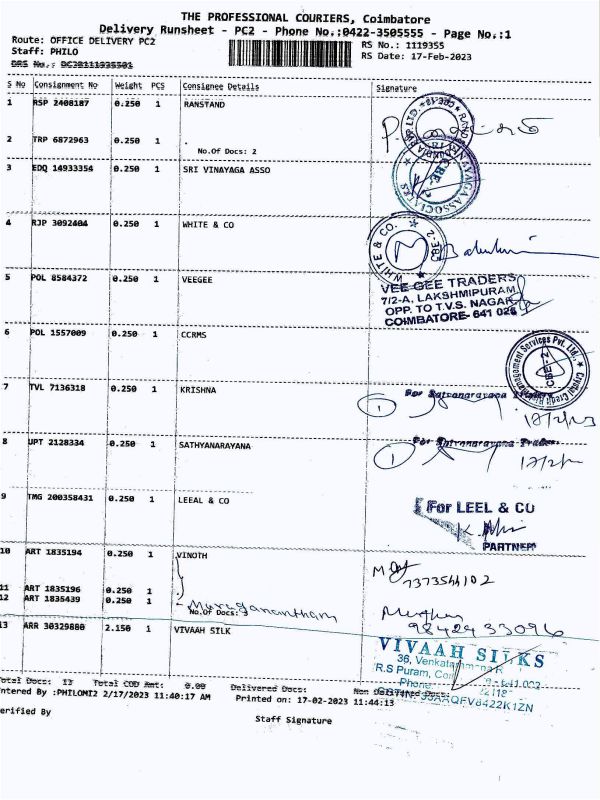 THE PROFESSIONAL COURIERS, Coimbatore
Delivery Runsheet - PC2 - Phone No.:0422-3505555 - Page No.:1
Route: OFFICE DELIVERY PC2
RS No.: 1119355
Staff: PHILO
RS Date: 17-Feb-2023
DRS No.: DC2B1119335501
S No Consignment No Weight PCS Consignee Details Signature
1 RSP 2408187 0.250 1 RANSTAND
2 TRP 6872963 0.250 1 .
No.Of Docs: 2
3 EDQ 14933354 0.250 1 SRI VINAYAGA ASSO
4 RJP 3092404 0.250 1 WHITE & CO
WHITE & CO. ★ CBE-2
5 POL 8584372 0.250 1 VEEGEE
VEE GEE TRADERS
7/2-A, LAKSHMIPURAM
OPP. TO T.V.S. NAGAR
COIMBATORE- 641 025
6 POL 1557009 0.250 1 CCRMS
CBE-2
7 TVL 7136318 0.250 1 KRISHNA
For Satyanarayana Traders
1
8 UPT 2128334 0.250 1 SATHYANARAYANA
For Satyanarayana Traders
1
9 TMG 200358431 0.250 1 LEEAL & CO
For LEEL & CO
PARTNER
10 ART 1835194 0.250 1 VINOTH
7373544102
11 ART 1835196 0.250 1
12 ART 1835439 0.250 1
Muruganantham
No.Of Docs: 3
9842433096
13 ARR 30329880 2.150 1 VIVAAH SILK
VIVAAH SILKS
R.S Puram,
Phone:
Total Docs: 13 Total COD Amt: 0.00 Delivered Docs: Non Delivered Docs:
Entered By :PHILOMI2 2/17/2023 11:40:17 AM Printed on: 17-02-2023 11:44:13
Verified By
Staff Signature